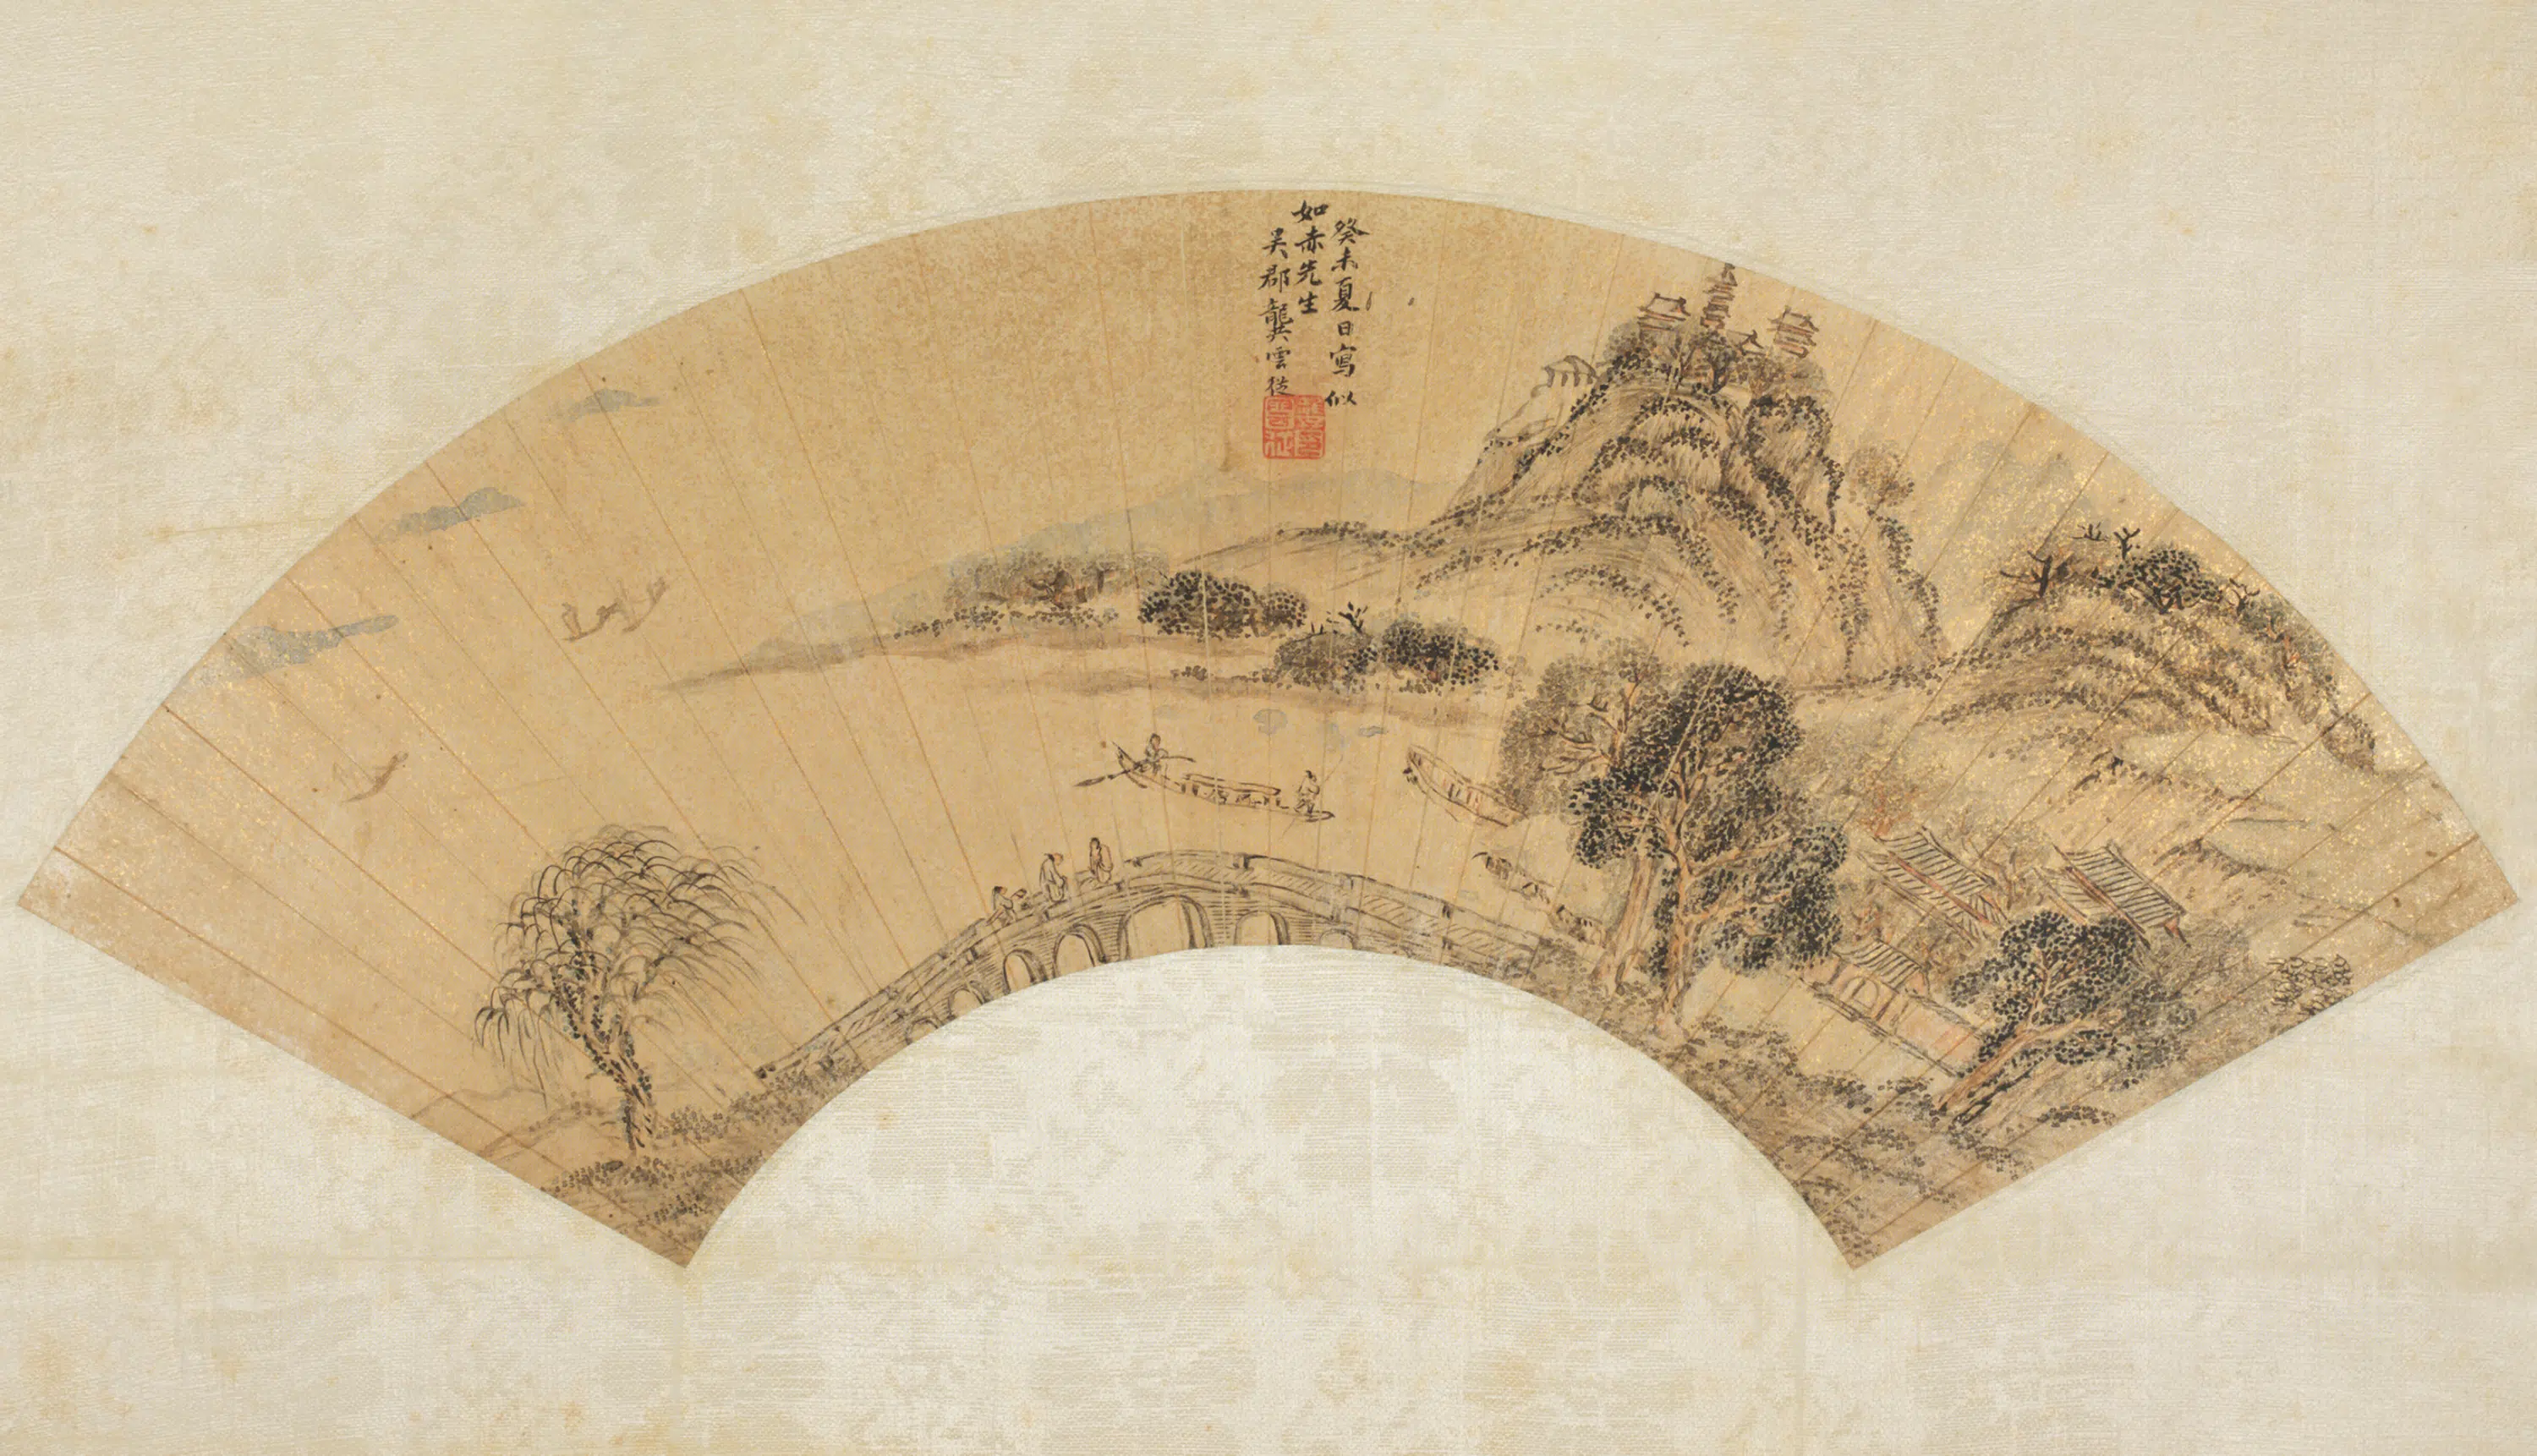 癸未夏日寫似
如赤先生
吳郡龔雲從